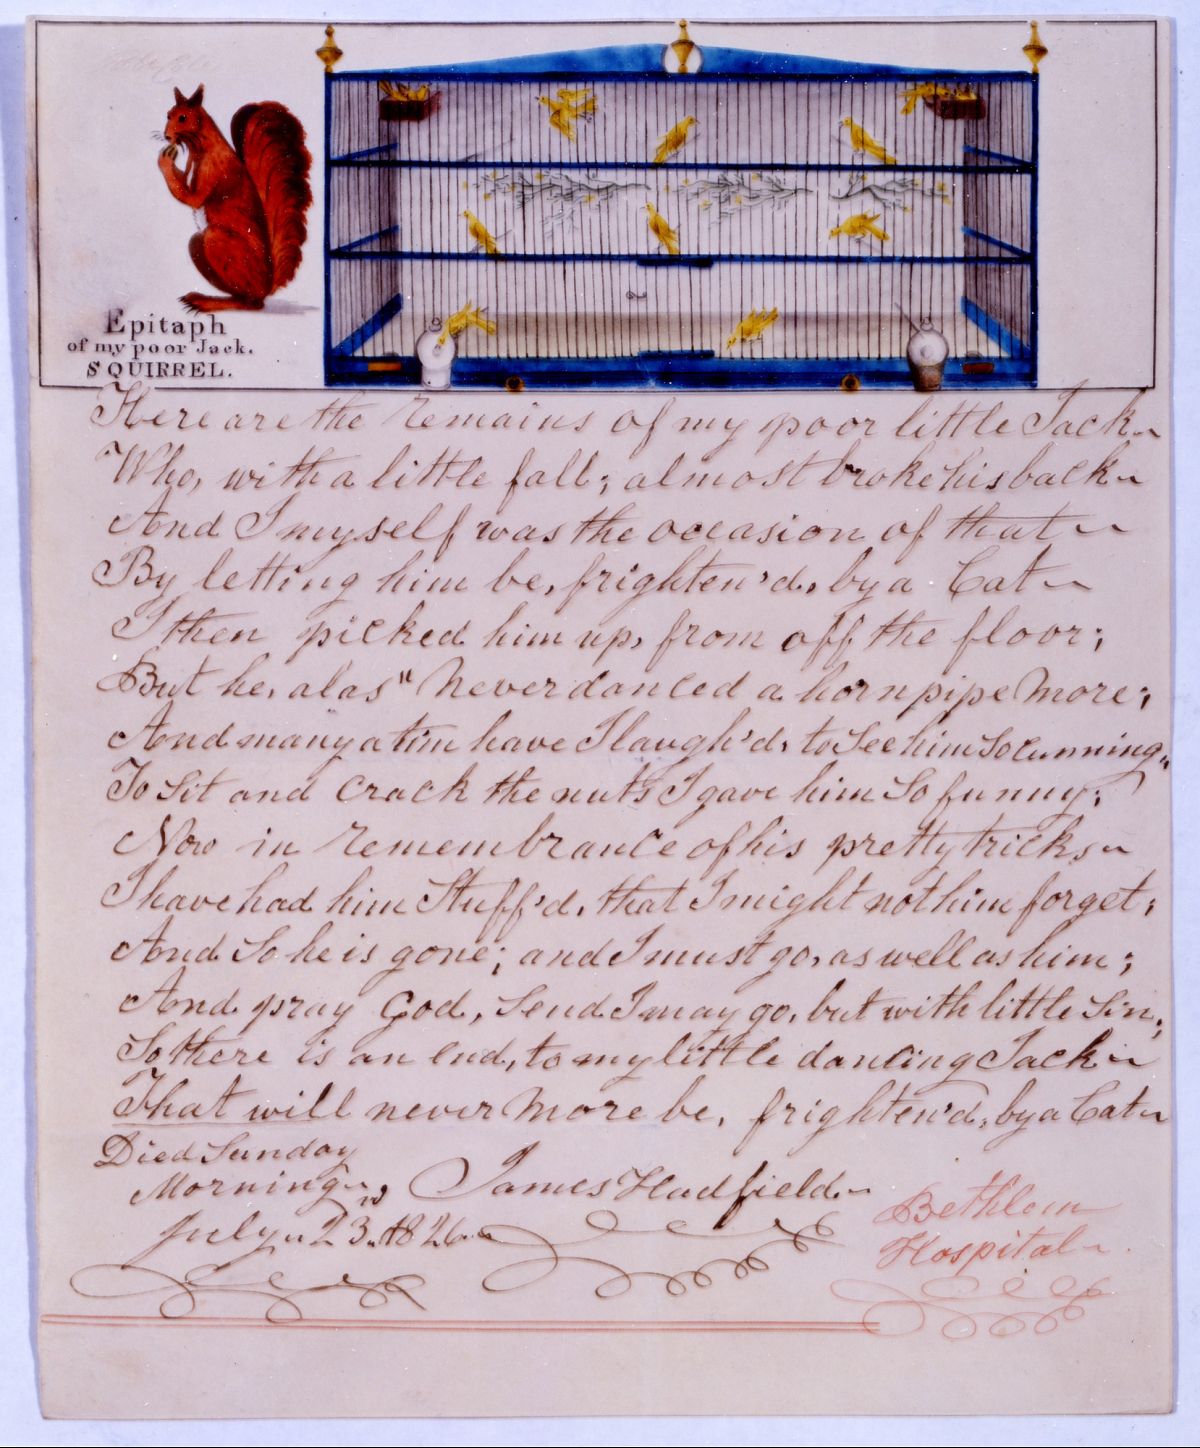 Epitaph
of my poor Jack.
SQUIRREL.
Here are the remains of my poor little Jack
Who, with a little fall; almost broke his back
And I myself was the occasion of that
By letting him be, frighten'd, by a Cat
I then picked him up, from off the floor;
But he, alas" Never danced a hornpipe More;
And many a tim have I laugh'd, to See him So Cunning,
To Sit and Crack the nuts I gave him So funny;
Now in remembrance of his pretty tricks
I have had him Stuff'd, that I might not him forget;
And So he is gone; and I must go, as well as him;
And pray God, Send I may go, but with little Sin;
So there is an End, to my little dancing Jack
That will never More be, frighten'd, by a Cat
Died Sunday
Morning,
July 23. 1826.
James Hadfield
Bethlem
Hospital